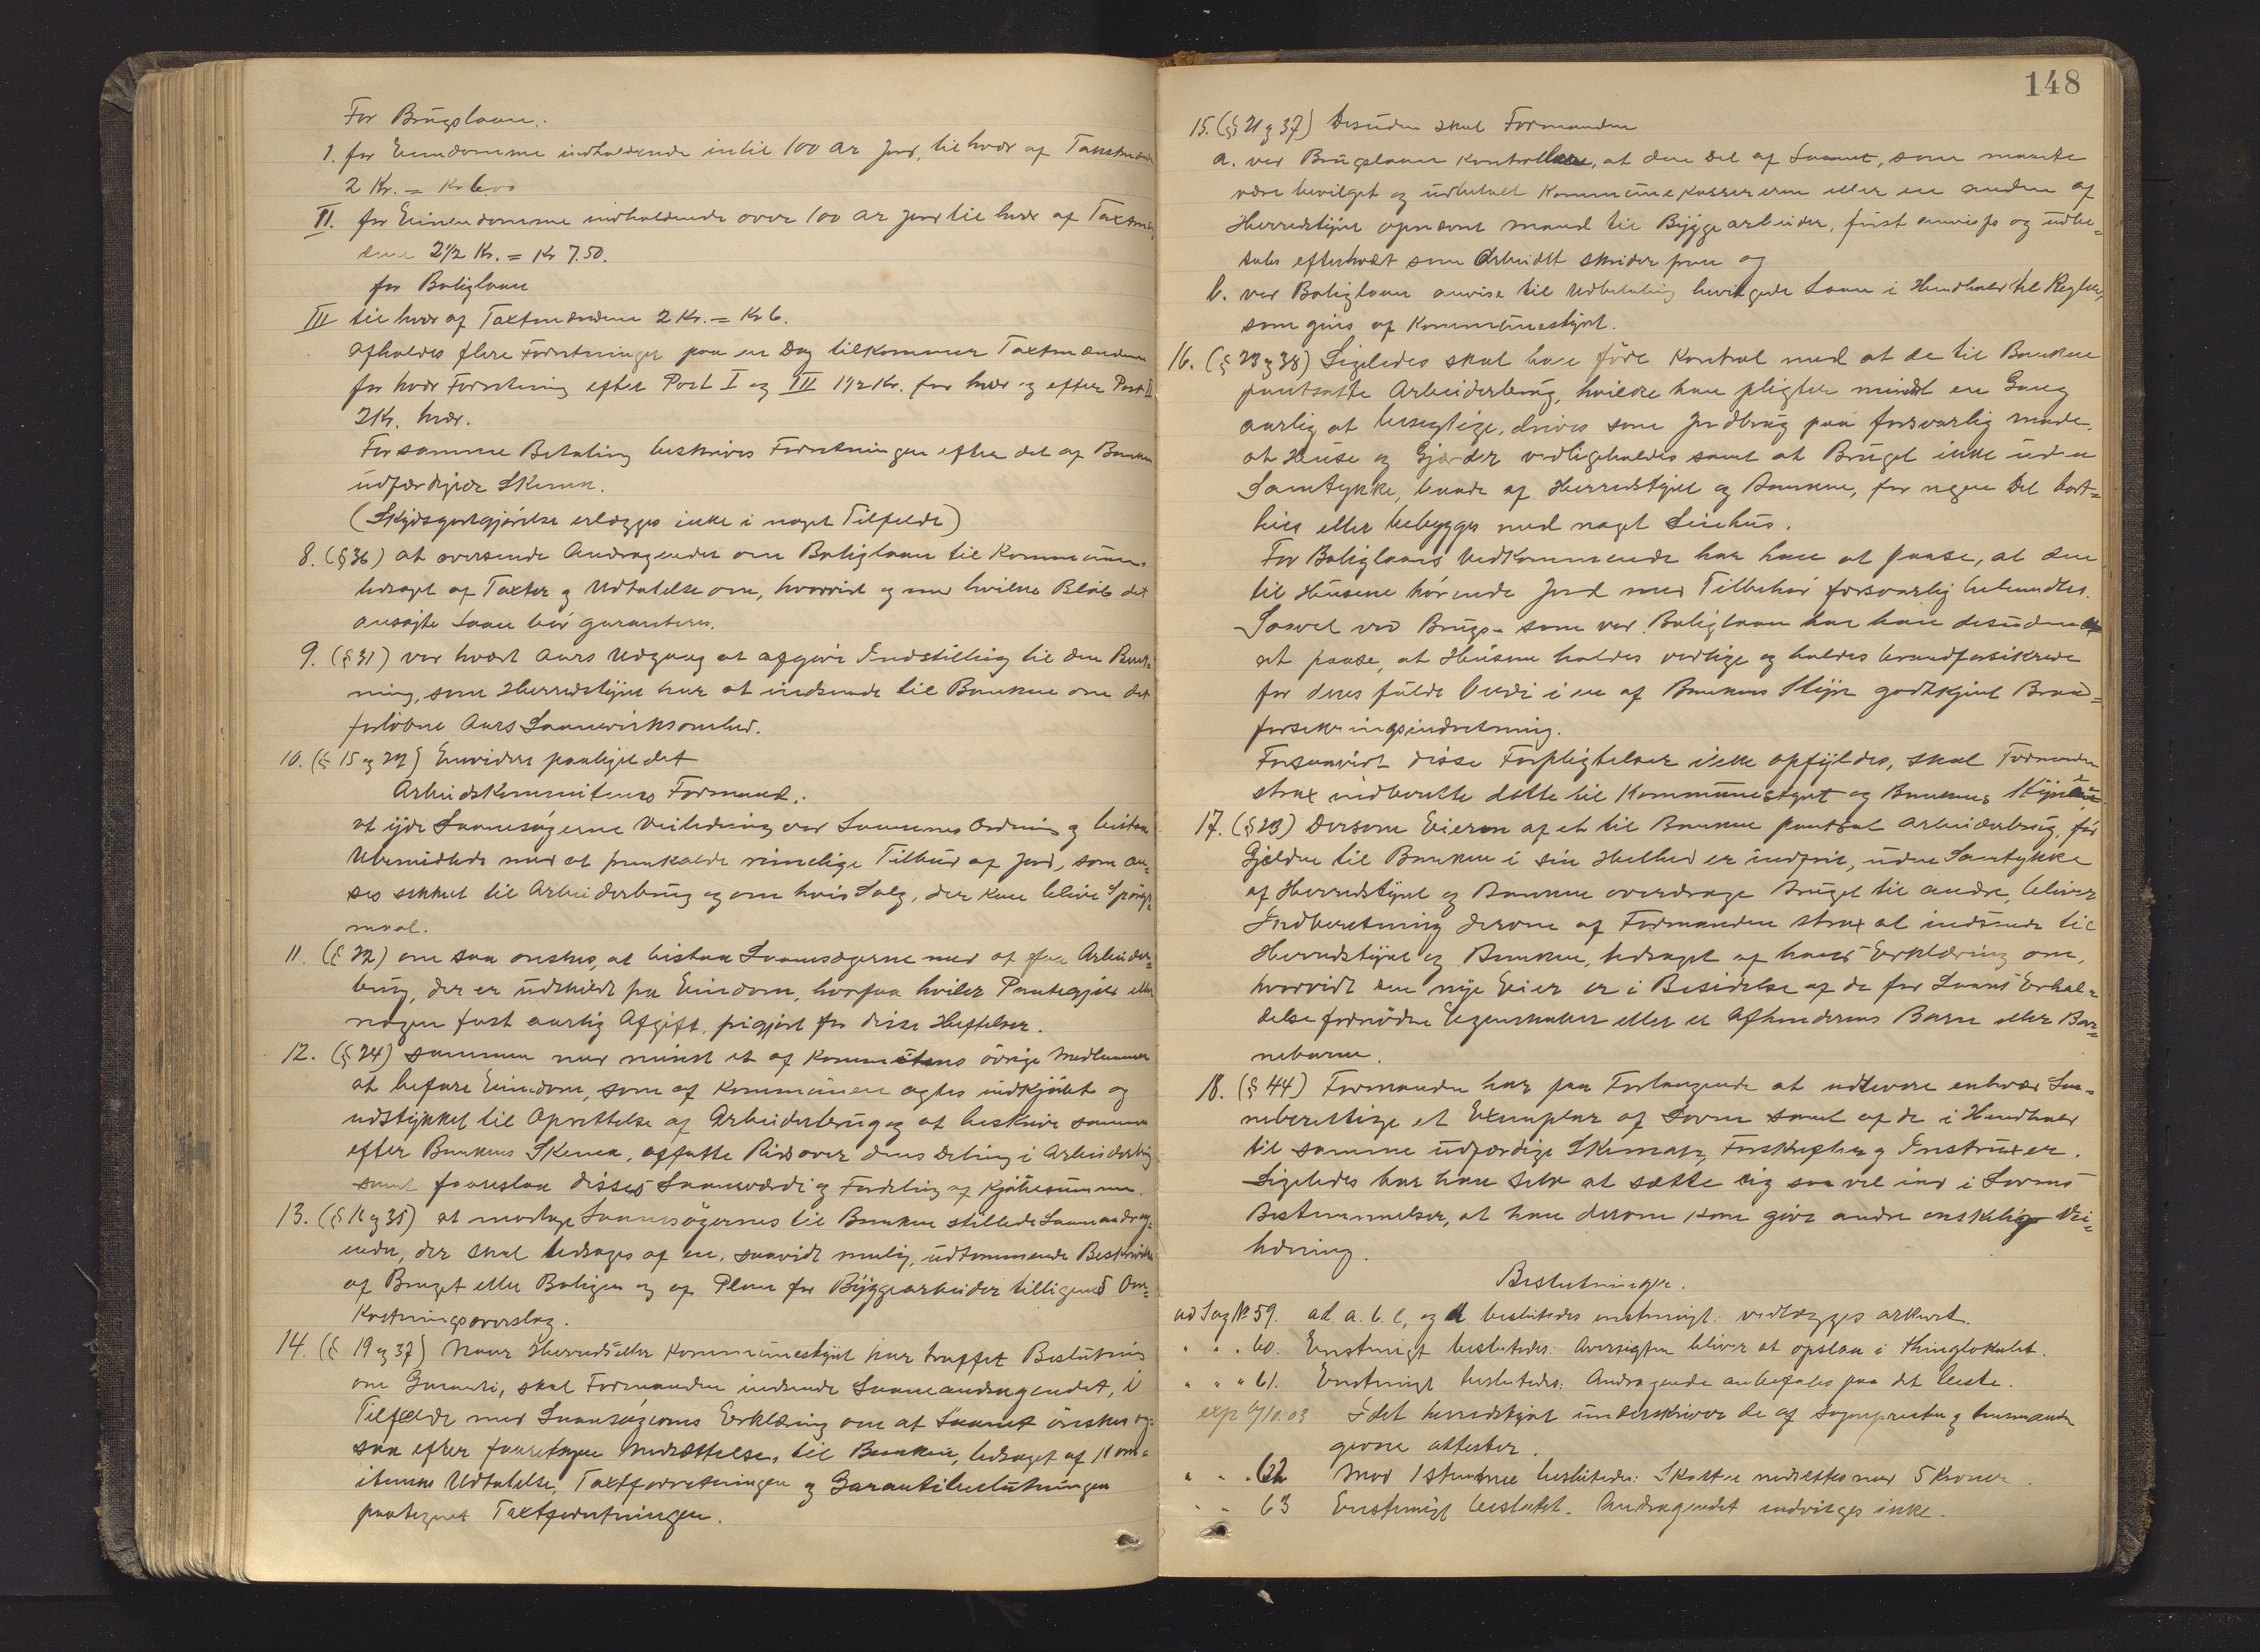 For Brugslaan.
1. for Eiendomme indholdende indtil 100 ar Jord, til hver af Taxtmænd
2 Kr. = Kr 6.00
II. for Eiendomme indholdende over 100 ar Jord til hver af Taxtmæn-
dene 2 1/2 Kr. = Kr 7.50.
for Boliglaan
III til hver af Taxtmændene 2 Kr. = Kr 6.
Afholdes flere Forretninger paa en Dag tilkommer Taxtmændene
for hver Forretning efter Post I og III 1 1/2 Kr. for hver og efter Post II
2 Kr. hver.
For samme Betaling beskrives Forretningen efter det af Banken
udfærdigede Skema.
(Skydsgodtgjörelse erlægges ikke i noget Tilfelde)
8. (§ 36) at oversende Andragender om Boliglaan til Kommunen,
ledsaget af Taxter og Udtalelse om, hvorvidt og med hvilke Beløb det
ansøgte Laan bör garanteres.
9. (§ 31) ved hvert Aars Udgang at afgive Indstilling til den Beret-
ning, som Herredstyret har at indsende til Banken om det
forløbne Aars Laanevirksomhed.
10. (§ 15 og 22) Enviders paaligger det
Arbeidskommiteens Formand.
at yde Laanesøgerne Veiledning ved Laanenes Ordning og bistaa
Ubemidlede med at fremkalde rimelige Tilbud af Jord, som an-
ses skikket til Arbeiderbrug og om hvis Salg, der kan blive Spörgs-
maal.
11. (§ 22) om saa ønskes, at bistaa Laanesøgerne med at faa Arbeider-
brug, der er udskildt fra Eiendom, hvorpaa hviler Pantegjæld eller
nogen fast aarlig Afgift, frigjort for disse Heftelser.
12. (§ 24) sammen med mindst et af Kommitens övrige Medlemmer
at befare Eiendom, som af Kommunen agtes indkjöbt og
udstykket til Oprettelse af Arbeiderbrug og at beskrive samme
efter Bankens Skema, affatte Rids over dens Deling i Arbeiderbrug
samt foreslaa disses Laaneværdi og Fordeling af Kjöbesummen.
13. (§ 16 og 35) at modtage Laanesögernes til Banken stillede Laaneandrag-
ender, der skal ledsages af en, saavidt mulig, udtømmende Beskrivelse
af Bruget eller Boligen og af Plan for Byggearbeider tilligemed Om-
kostningsoverslag.
14. (§ 19 og 37) Naar Herreds eller Kommunestyret har truffet Beslutning
om Garanti, skal Formanden indsende Laaneandragendet, i
Tilfælde med Laansøgerens Erklæring om at Laanet önskes og-
saa efter foretagen Nedsættelse, til Banken, ledsaget af Kom-
iteens Udtalelse, Taxtforretningen og Garantibeslutningen
paategnet Taxtforretningen.
148
15. (§ 21 og 37) Desuden skal Formanden
a. ved Brugslaan kontrollere, at den Del af Laanet, som maatte
være bevilget og udbetalt Kommunekassereren eller en anden af
Herredstyret opnævnt mand til Byggearbeider, først anvises og udbe-
tales efterhvert som Arbeidet skrider frem og
b. ved Boliglaan anvise til Udbetaling bevilgede Laan i Henhold til Regler,
som gives af Kommunestyret.
16. (§ 23 og 38) Ligeledes skal han före Kontrol med at de til Banken
pantsatte Arbeiderbrug, hvilke han pligter mindst en Gang
aarlig at besigtige, drives som Jordbrug paa forsvarlig maade,
at Huse og Gjærder vedligeholdes samt at Bruget ikke uden
Samtykke, baade af Herredstyret og Banken, for nogen Del bort-
leies eller bebygges med noget Leiehus.
For Boliglaans Vedkommende har han at paase, at den
til Husene hörende Jord med Tilbehör forsvarlig behandles.
Saavel ved Brugs- som ved Boliglaan har han desuden
at paase, at Husene holdes vedlige og holdes brandforsikrede
for deres fulde Verdi i en af Bankens Styre godkjent Brand-
forsikringsindretning.
Forsaavidt disse Forpligtelser ikke opfyldes, skal Formanden
strax indberette dette til Kommunestyret og Bankens Styre
17. (§ 23) Dersom Eieren af et til Banken pantsat Arbeiderbrug, för
Gjælden til Banken i sin Helhed er indfriet, uden Samtykke
af Herredstyret og Banken overdrage Bruget til andre, bliver
Indberetning derom af Formanden strax at indsende til
Herredstyret og Banken, ledsaget af hans Erklæring om,
hvorvidt den nye Eier er i Besidelse af de for Laans Erhol-
delse fornödne Egenskaber eller er Afhenderens Barn eller Bar-
nebarn.
18. (§ 44) Formanden har paa Forlangende at udlevere enhver Laa-
neberettige et Exemplar af Loven samt af de i Henhold
til samme udfærdige Skemaer, Forskrifter og Instruxer.
Ligeledes har han selv at sætte sig saa vel ind i Lovens
Bestemmelser, at han derom kan give andre ønskelig Vei-
ledning.
Beslutninger.
ad Sag № 59. ad. a. b. c, og d besluttedes enstemigt: vedlægges arkivet.
" " " 60. Enstemigt besluttedes: Oversigten bliver at opslaa i Thinglokalet.
" " " 61. Enstemigt besluttedes: Andragende anbefales paa det beste.
exp 6/10.03 Idet herredstyret underskriver de af sogneprest og lensmand
givne attester.
" " " 62 Mod 1 stemme besluttedes: Skatten nedsættes med 5 Kroner.
" " 63 Enstemigt besluttet. Andragendet indvilges ikke.